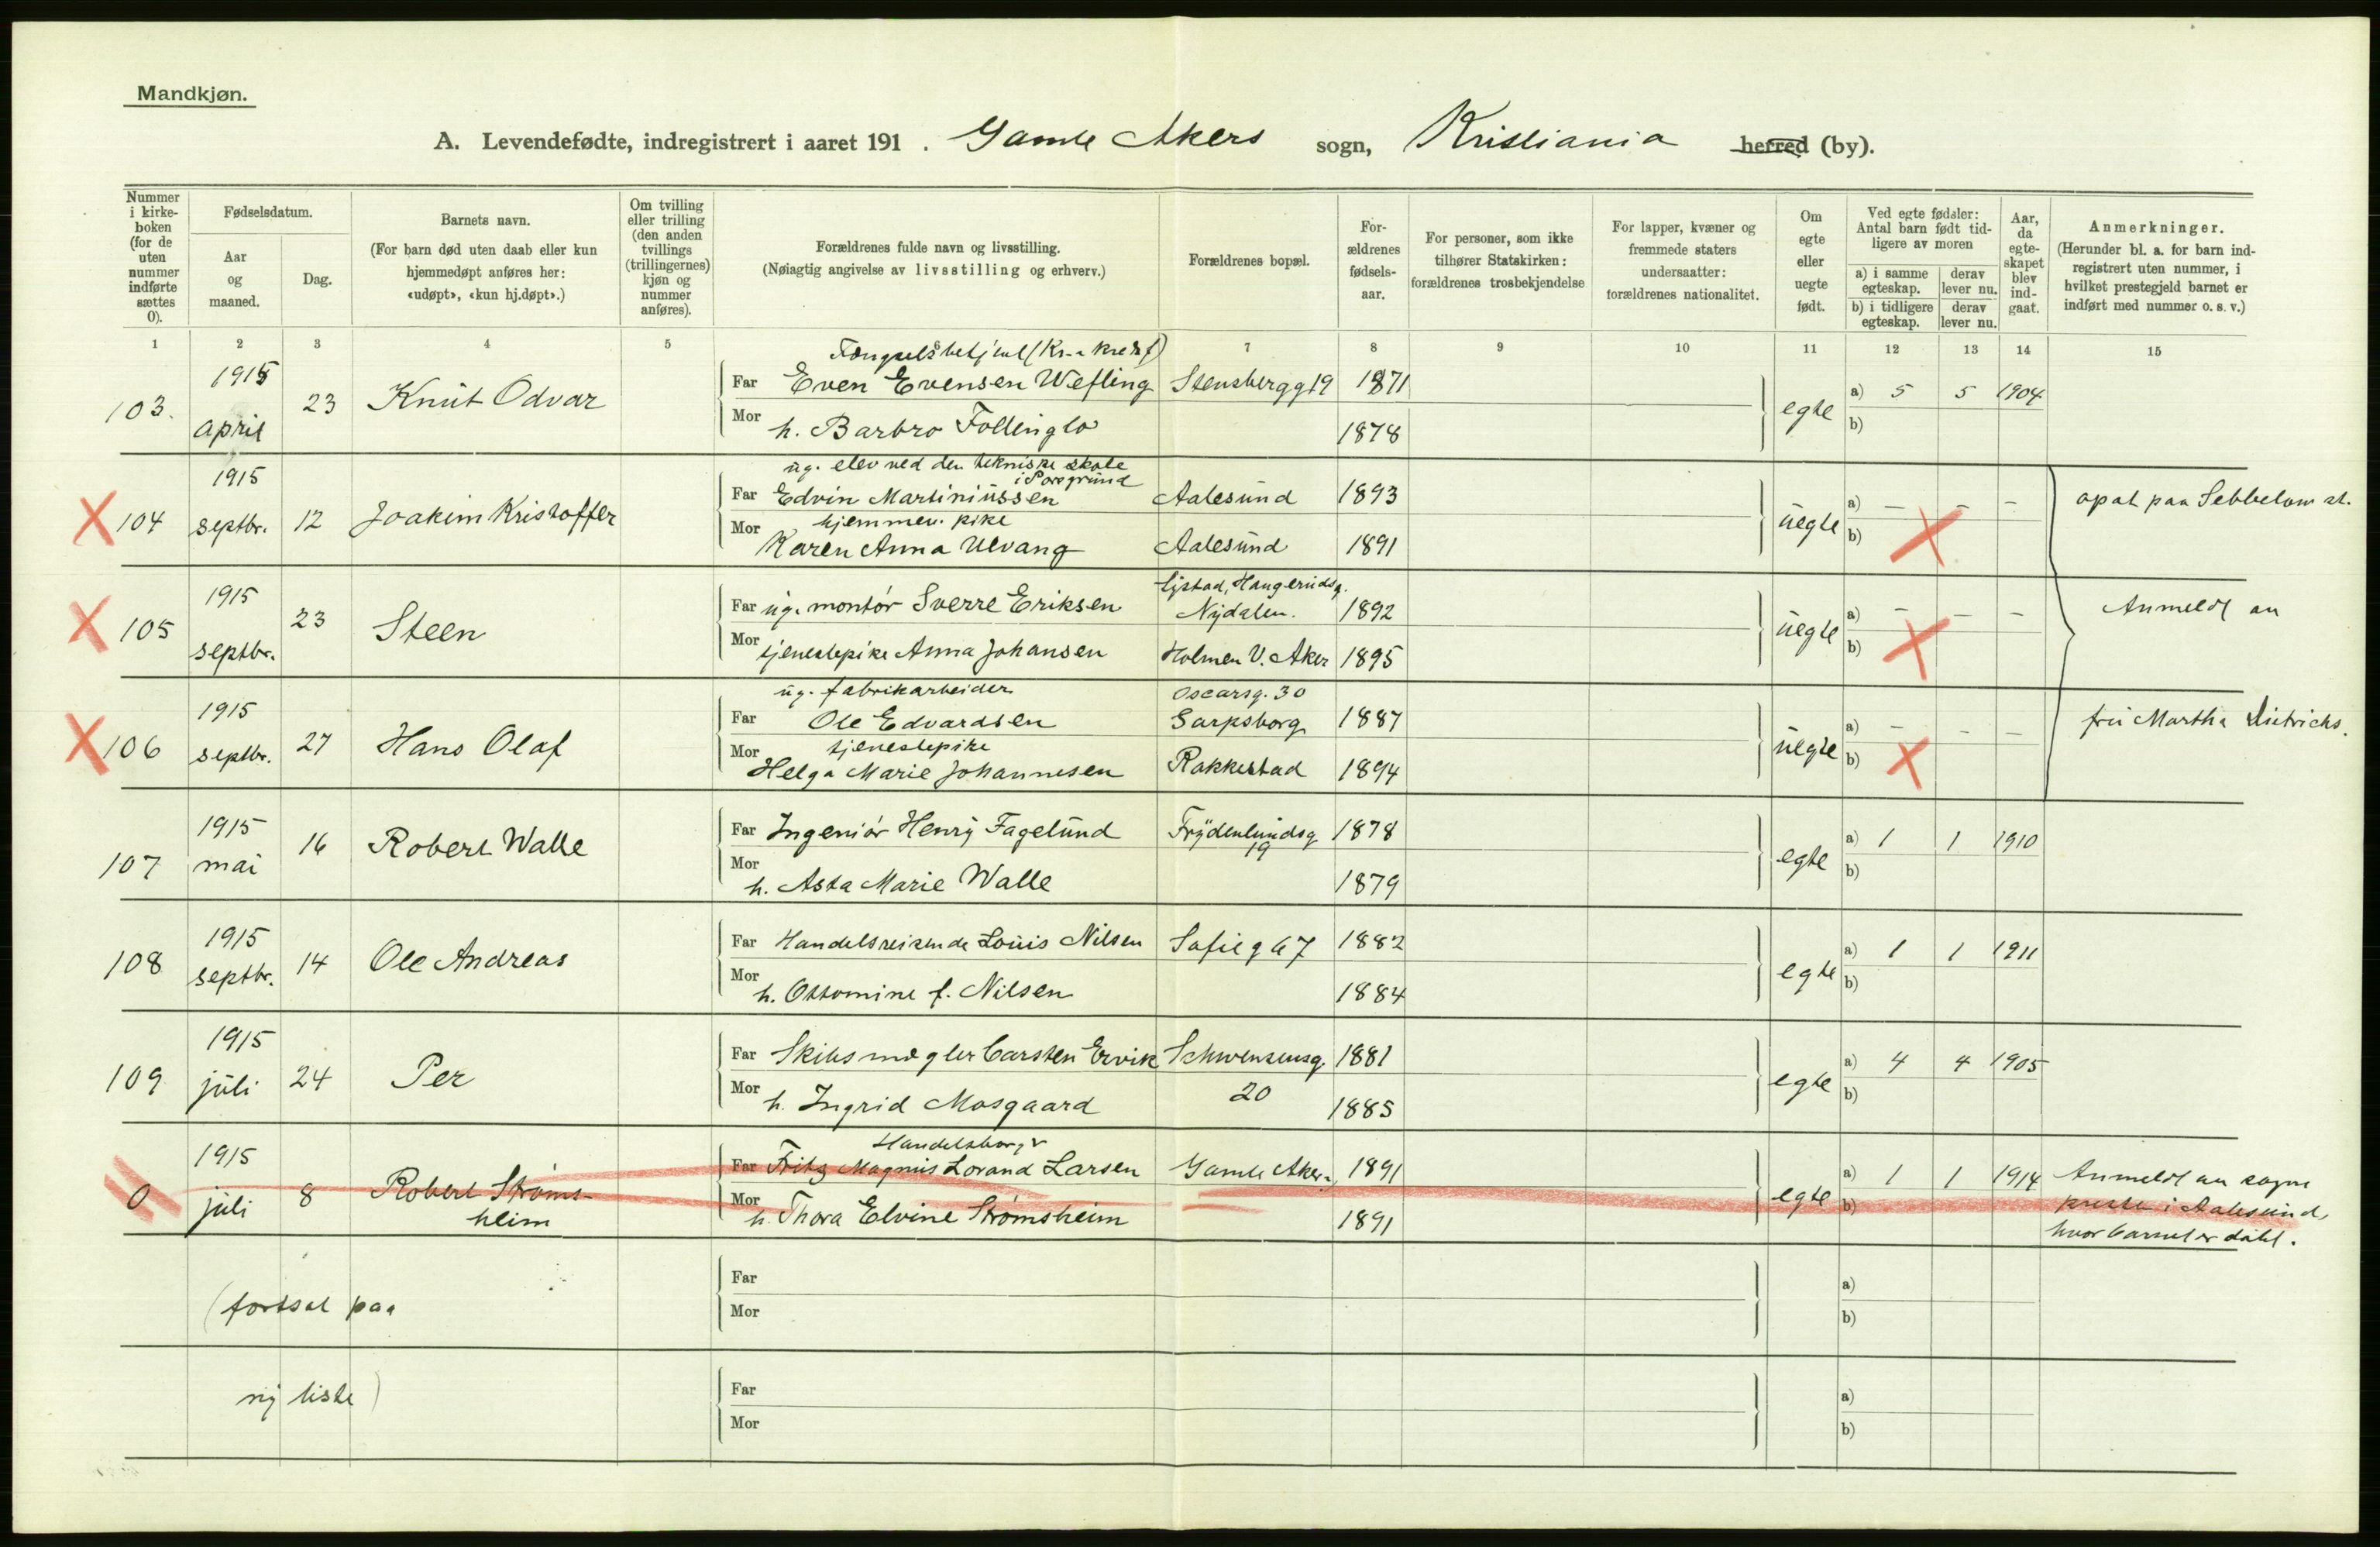 Mandkjøn.
A. Levendefødte, indregistrert i aaret 191 . Gamle Akers sogn, Kristiania herred (by).
Nummer i kirke-boken (for de uten nummer indførte sættes 0).
Fødselsdatum.
Aar og maaned.
Dag.
Barnets navn.
(For barn død uten daab eller kun hjemmedøpt anføres her: «udøpt», «kun hj.døpt».)
Om tvilling eller trilling (den anden tvillings (trillingernes) kjøn og nummer anføres).
Forældrenes fulde navn og livsstilling.
(Nøiagtig angivelse av livsstilling og erhverv.)
Forældrenes bopæl.
For-ældrenes fødsels-aar.
For personer, som ikke tilhører Statskirken: forældrenes trosbekjendelse
For lapper, kvæner og fremmede staters undersaatter: forældrenes nationalitet.
Om egte eller uegte født.
Ved egte fødsler: Antal barn født tid-ligere av moren
a) i samme egteskap.
derav lever nu.
b) i tidligere egteskap.
derav lever nu.
Aar, da egte-skapet blev ind-gaat.
Anmerkninger.
(Herunder bl. a. for barn ind-registrert uten nummer, i hvilket prestegjeld barnet er indført med nummer o. s. v.)
1 2 3 4 5 6 7 8 9 10 11 12 13 14 15
Fængselsbetjent
103. 1915 april 23 Knut Odvar
Far Even Evensen Wefling Stensbergg 19 1871
Mor h. Barbro Follinglo 1878
egte a) 5 5 1904
b)
ug. elev ved den tekniske skole
i Porsgrund
104 1915 septbr. 12 Joakim Kristoffer
Far Edvin Martiniussen Aalesund 1893
hjemmev. pike
Mor Karen Anna Ulvang Aalesund 1891
uegte a) – – –
b)
opat paa Sebbelows st.
105 1915 septbr. 23 Steen
Far ug. montør Sverre Eriksen Haugerudsg. Nydalen. 1892
Mor tjenestepike Anna Johansen Holmen V. Aker 1895
uegte a) – – –
b)
Anmeldt an
106 1915 septbr. 27 Hans Olaf
ug. fabrikarbeider Oscarsg. 30
Far Ole Edvardsen Sarpsborg 1887
tjenestepike
Mor Helga Marie Johannesen Rakkestad 1894
uegte a) – – –
b)
fru Martha Dietrichs.
107 1915 mai 16 Robert Walle
Far Ingeniør Henry Fagelund Frydenlundsg 19 1878
Mor h. Asta Marie Walle 1879
egte a) 1 1 1910
b)
108 1915 septbr. 14 Ole Andreas
Far Handelsreisende Louis Nilsen Sofie g 67 1882
Mor h. Ottomine f. Nilsen 1884
egte a) 1 1 1911
b)
109 1915 juli 24 Per
Far Skibsmægler Carsten Ervik Schwensensg. 20 1881
Mor h. Ingrid Mosgaard 1885
egte a) 4 4 1905
b)
0 1915 juli 8 Robert Strøms-
heim
Handelsborger
Far Fritz Magnus Lorand Larsen Gamle Aker 1891
Mor h. Thora Elvine Strømsheim 1891
egte a) 1 1 1914
b)
Anmeldt an sogne
presten i Aalesund,
hvor barnet er døbt.
(fortsat paa
Far
Mor
a)
b)
ny liste)
Far
Mor
a)
b)